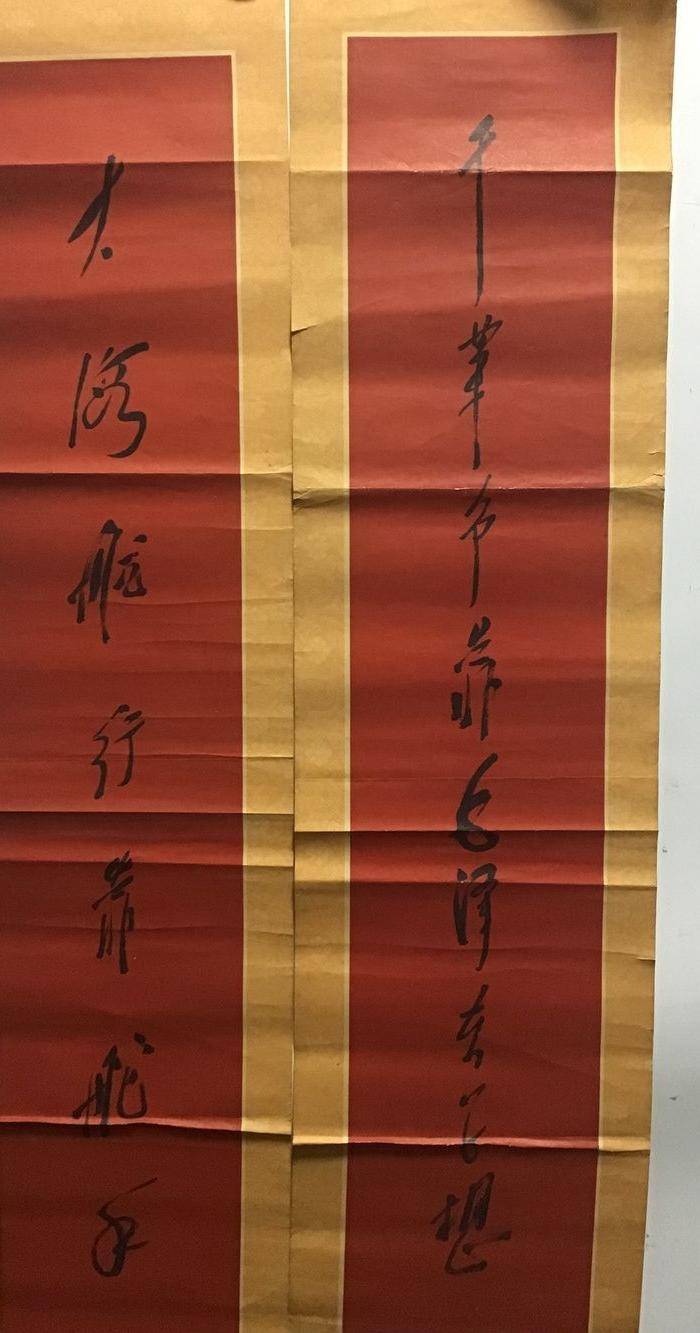 干革命靠毛泽东思想
大海航行靠舵手